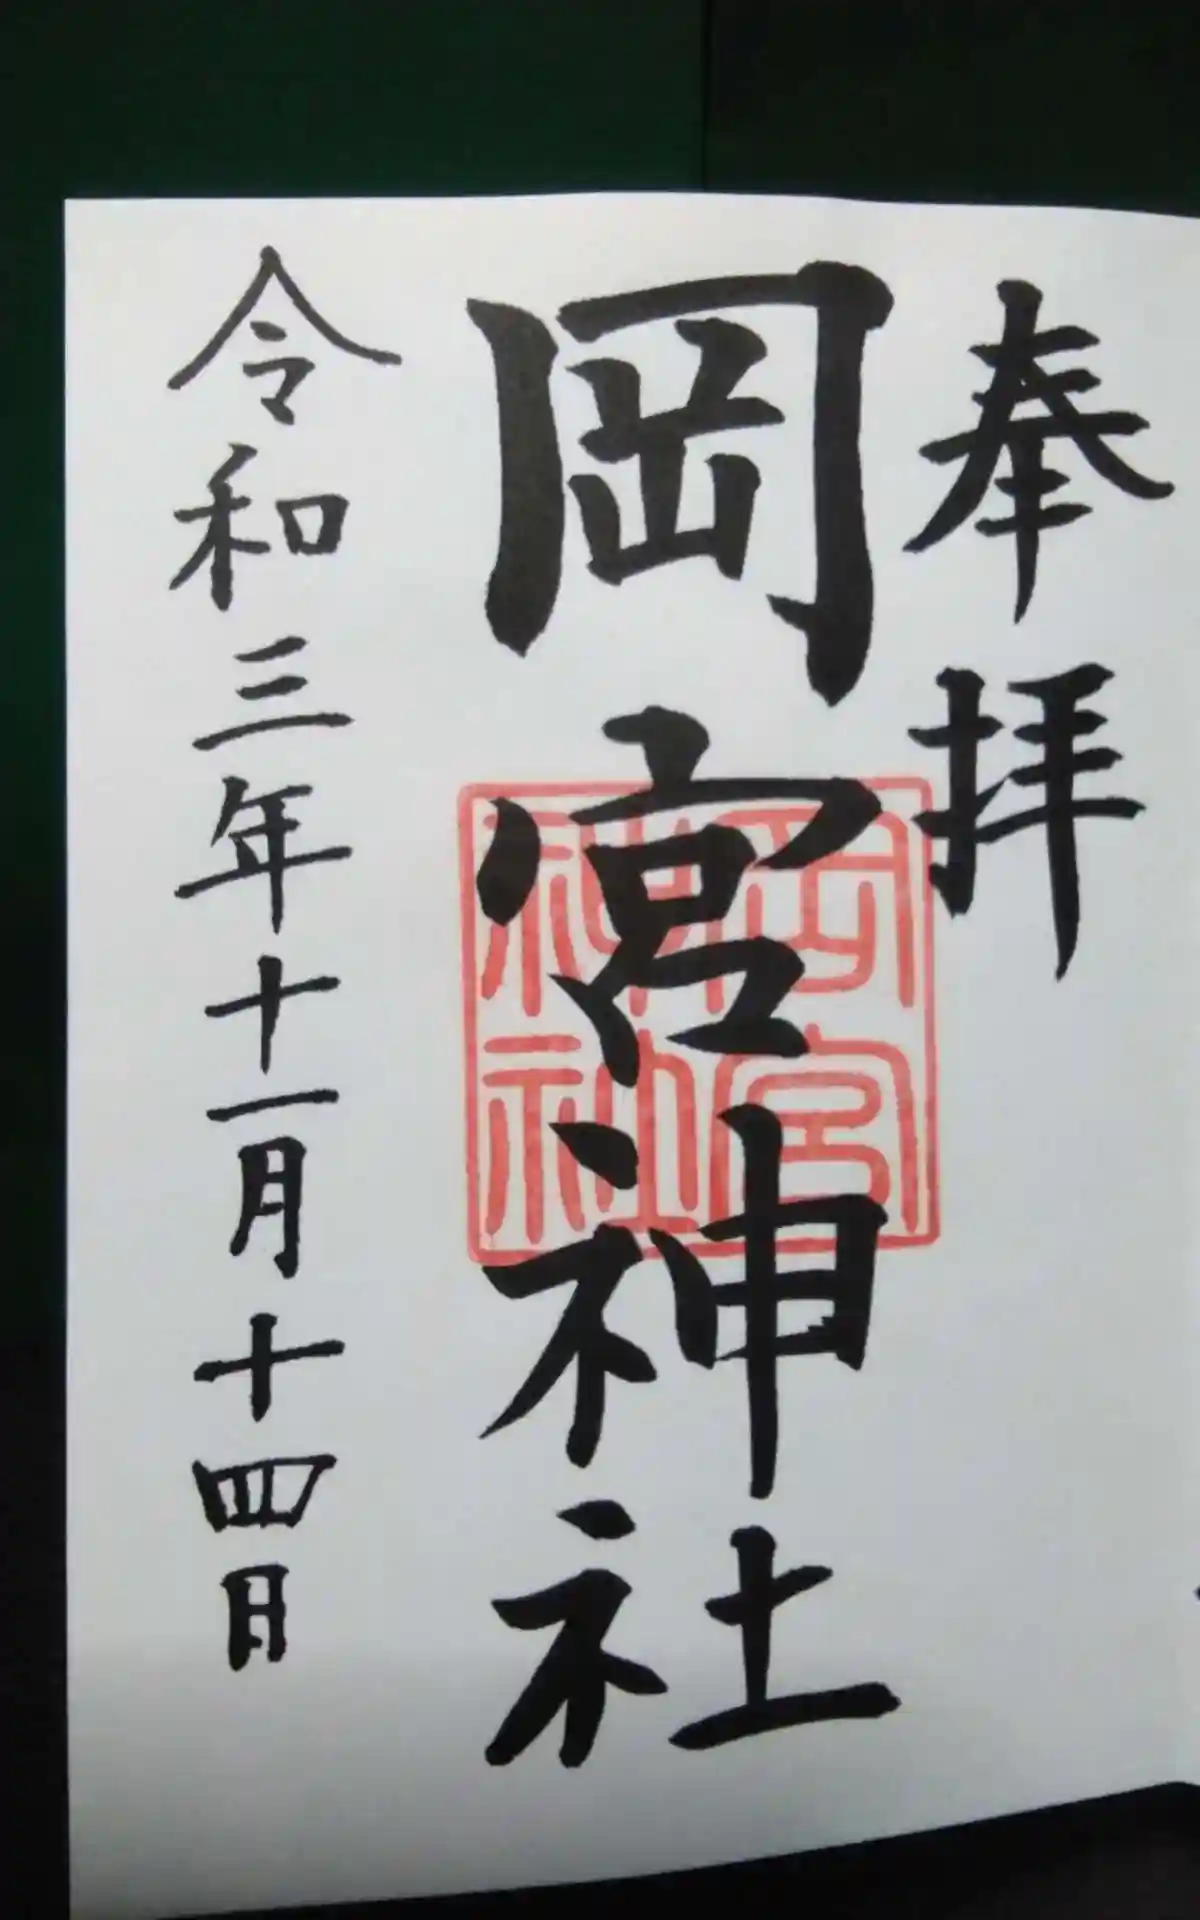 奉拝
岡宮神社
岡宮
神社
令和三年十一月十四日